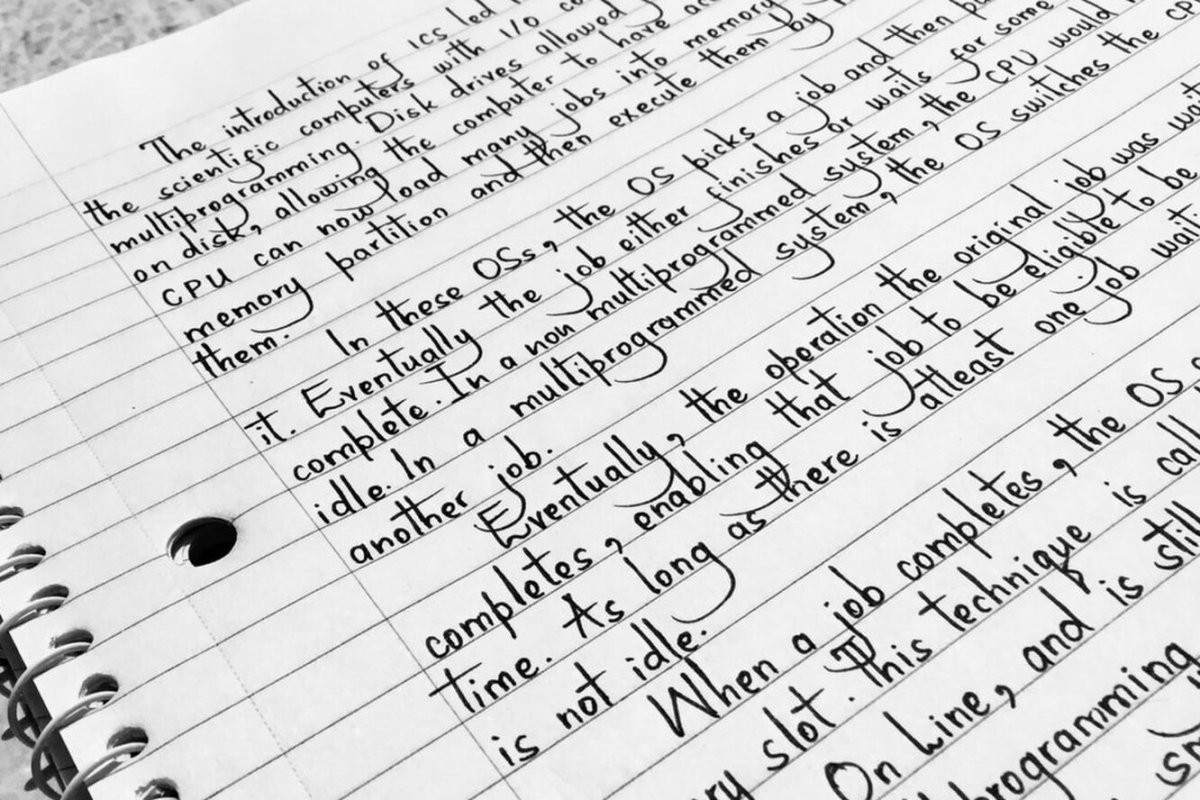 The introduction of ICs led
the scientific computers with I/O
multiprogramming. Disk drives allowed
on disk, allowing the computer to have
CPU can now load many jobs into memory
memory partition and then execute them by
them.
In these OSs, the OS picks a job and then
it. Eventually the job either finishes or waits for some
complete. In a non multiprogrammed system, the CPU would
idle. In a multiprogrammed system, the OS switches the
another job.
Eventually, the operation the original job was
completes, enabling that job to be eligible to be
time. As long as there is atleast one job
is not idle.
When a job completes, the OS
slot. This technique is
On Line, and is still
programming